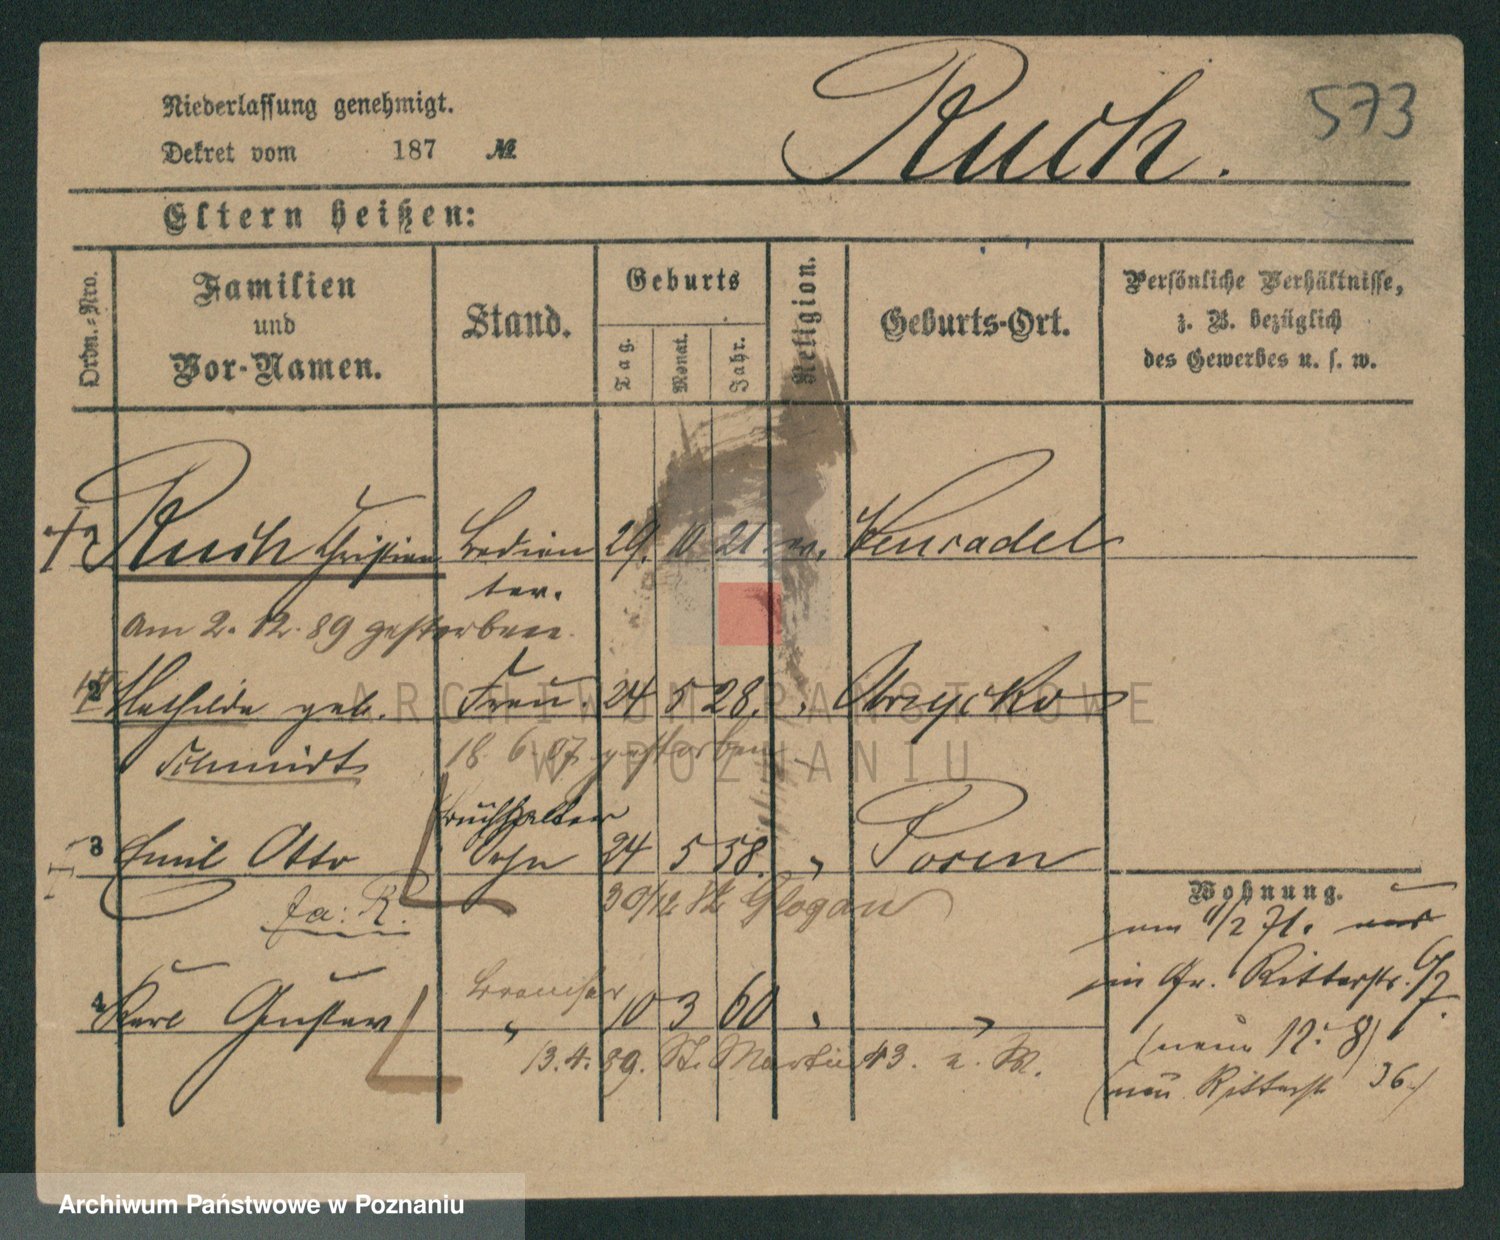 573
Niederlassung genehmigt.
Ruch.
Dekret vom 187 №
Eltern heißen:
Ordn.-Nro.
Familien und Vor-Namen.
Stand.
Geburts
Tag. Monat. Jahr.
Religion.
Geburts-Ort.
Persönliche Verhältnisse, z. B. bezüglich des Gewerbes u. s. w.
Ruch Christian 29. 10 21
am 2. 12. 89 gestorben.
2 Mathilde geb. Frau. 24 5 28. Obrzycko
Schmidt 18 6 87 gestorben
Buchhalter
3 Emil Otto Sohn 24 5 58. " Posen
fa: R. 30/12 Glogau
Wohnung.
4 Karl Gustav " 10 3 60 " "
13.4.89. St. Martin 43. z. W.
in Gr. Ritterstr. 6/7.
(neue 12: 8)
(neu Ritterstr 36.)
ARCHIWUM PAŃSTWOWE
W POZNANIU
Archiwum Państwowe w Poznaniu